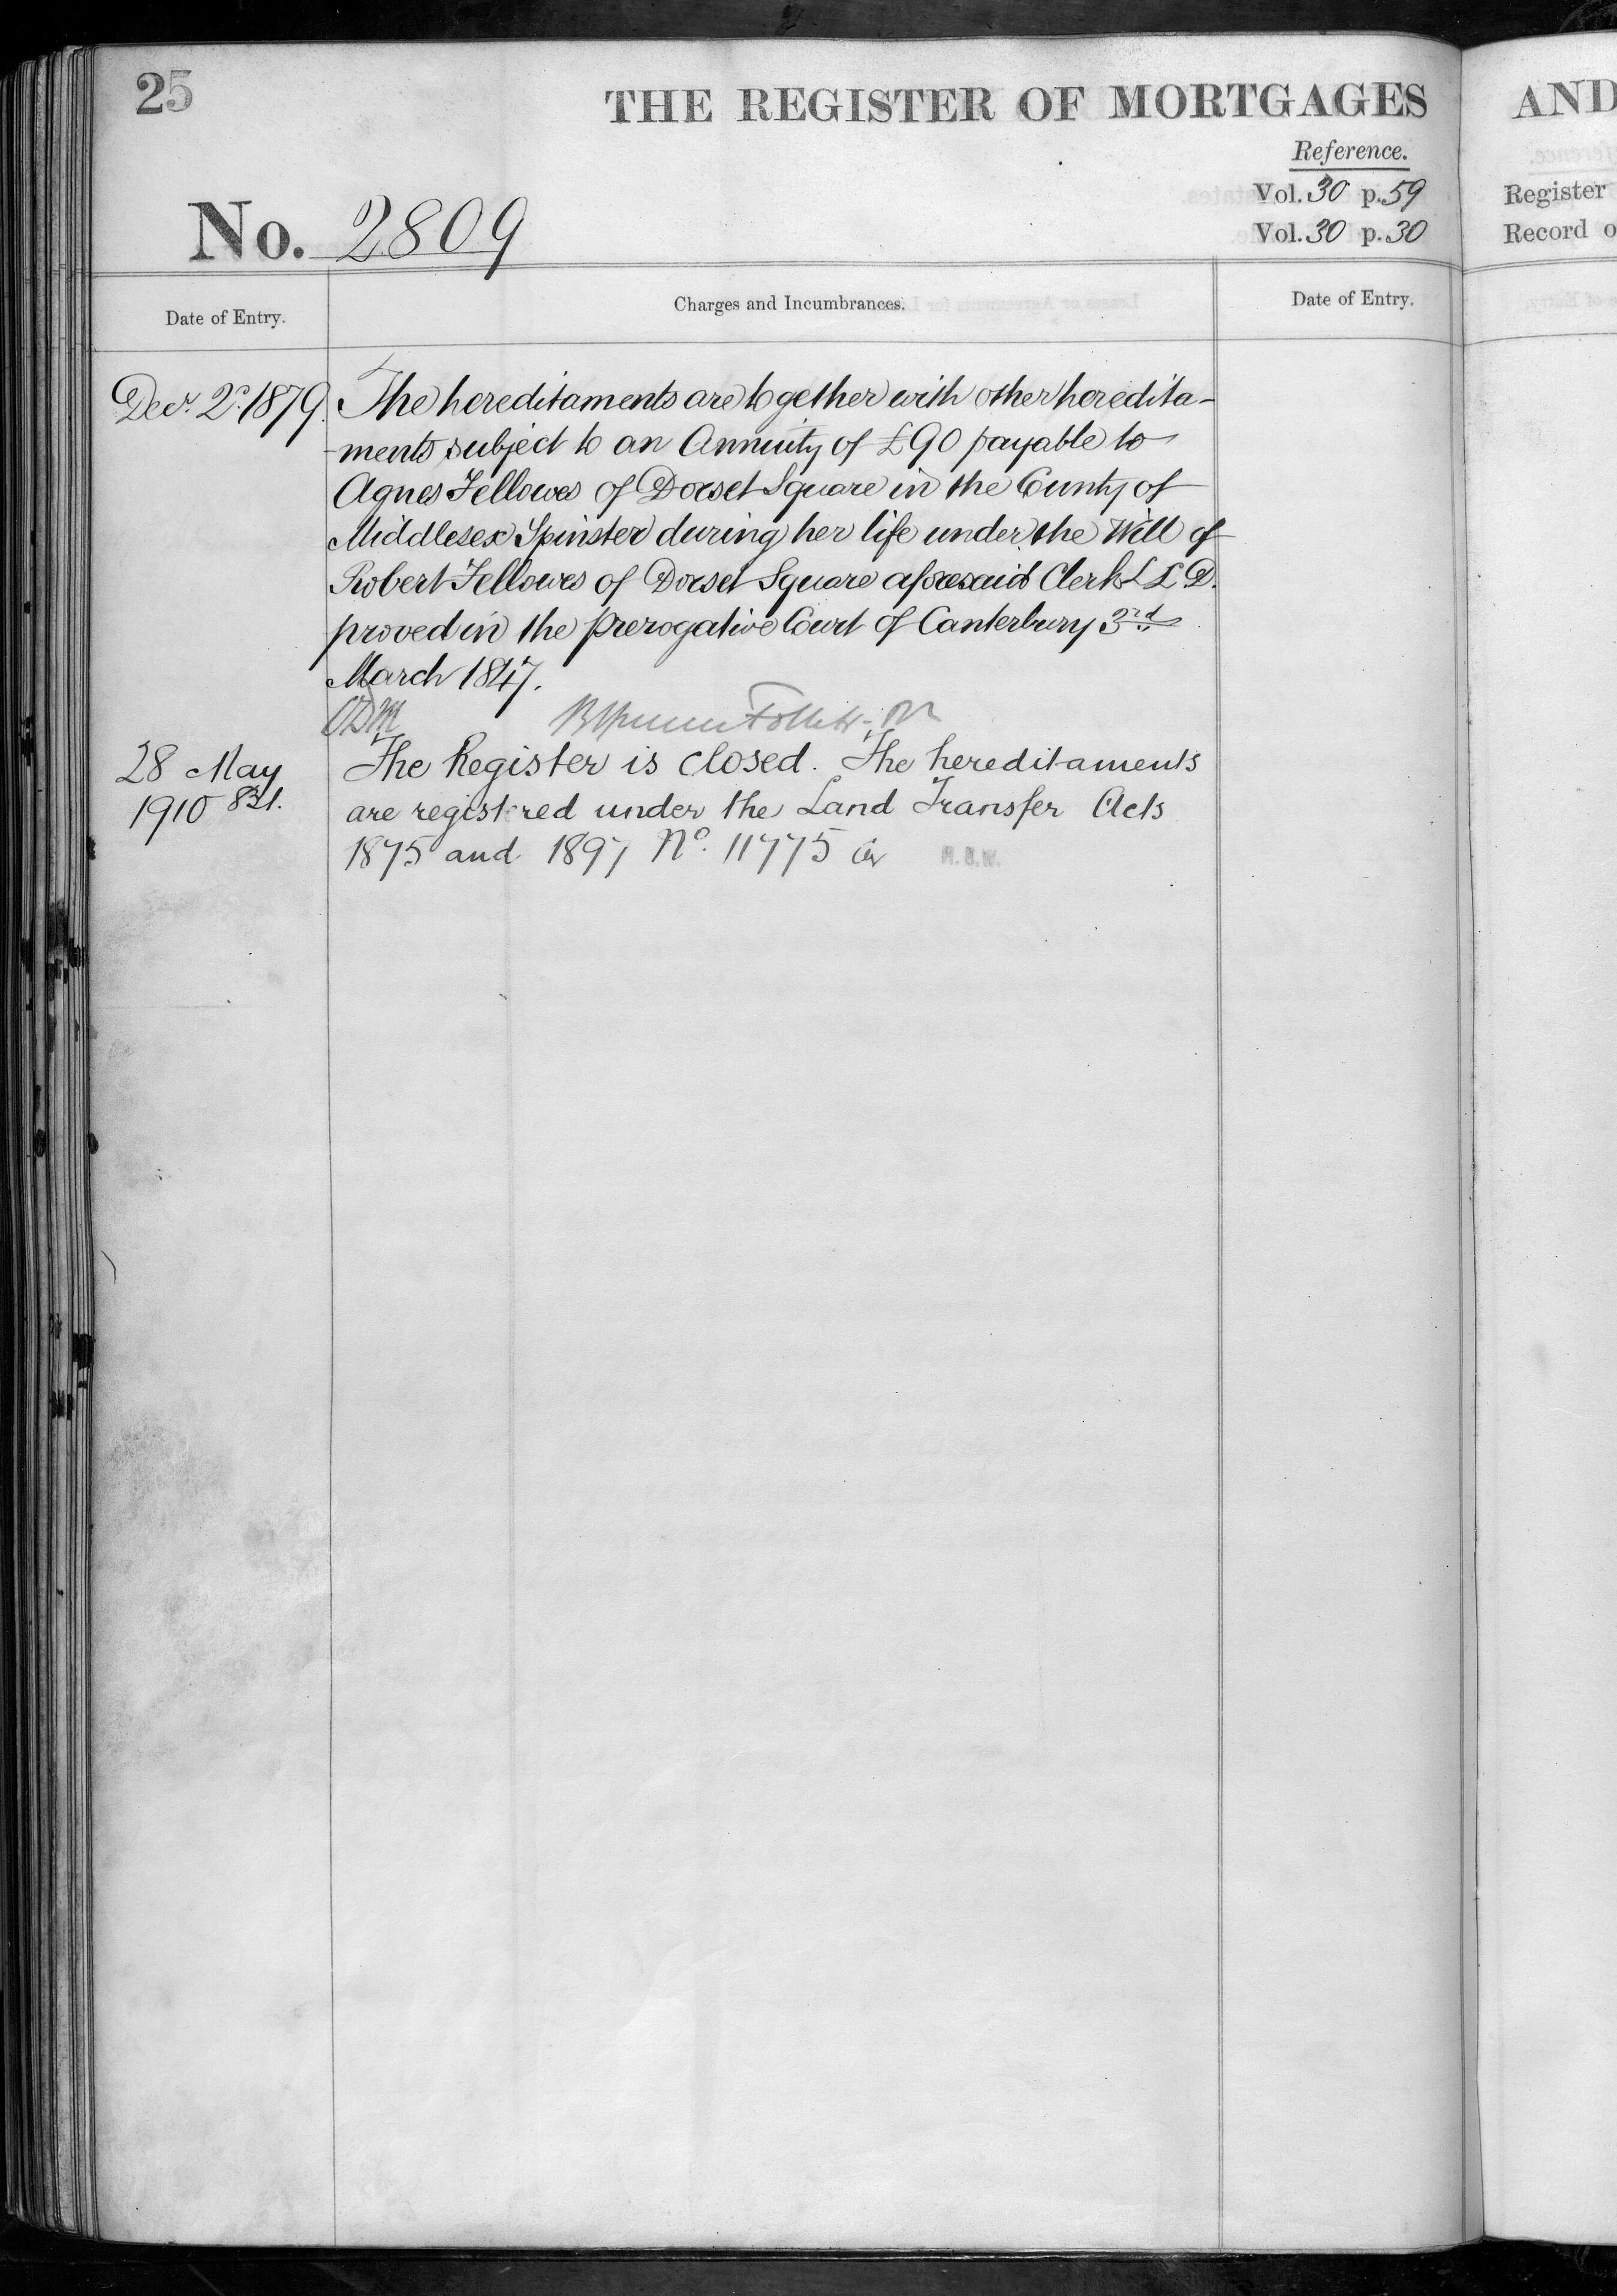 25
THE REGISTER OF MORTGAGES
Reference.
Vol. 30 p. 59
No. 2809
Vol. 30 p. 30
Date of Entry.
Charges and Incumbrances.
Date of Entry.
Decr. 2d. 1879.
The hereditaments are together with other heredita-
ments subject to an Annuity of £90 payable to
Agnes Fellowes of Dorset Square in the County of
Middlesex Spinster during her life under the Will of
Robert Fellowes of Dorset Square aforesaid Clerk L L D.
proved in the Prerogative Court of Canterbury 3rd
March 1847.
28 May
1910
The Register is closed. The hereditaments
are registered under the Land Transfer Acts
1875 and 1897 No. 11775
AND
Register
Record o